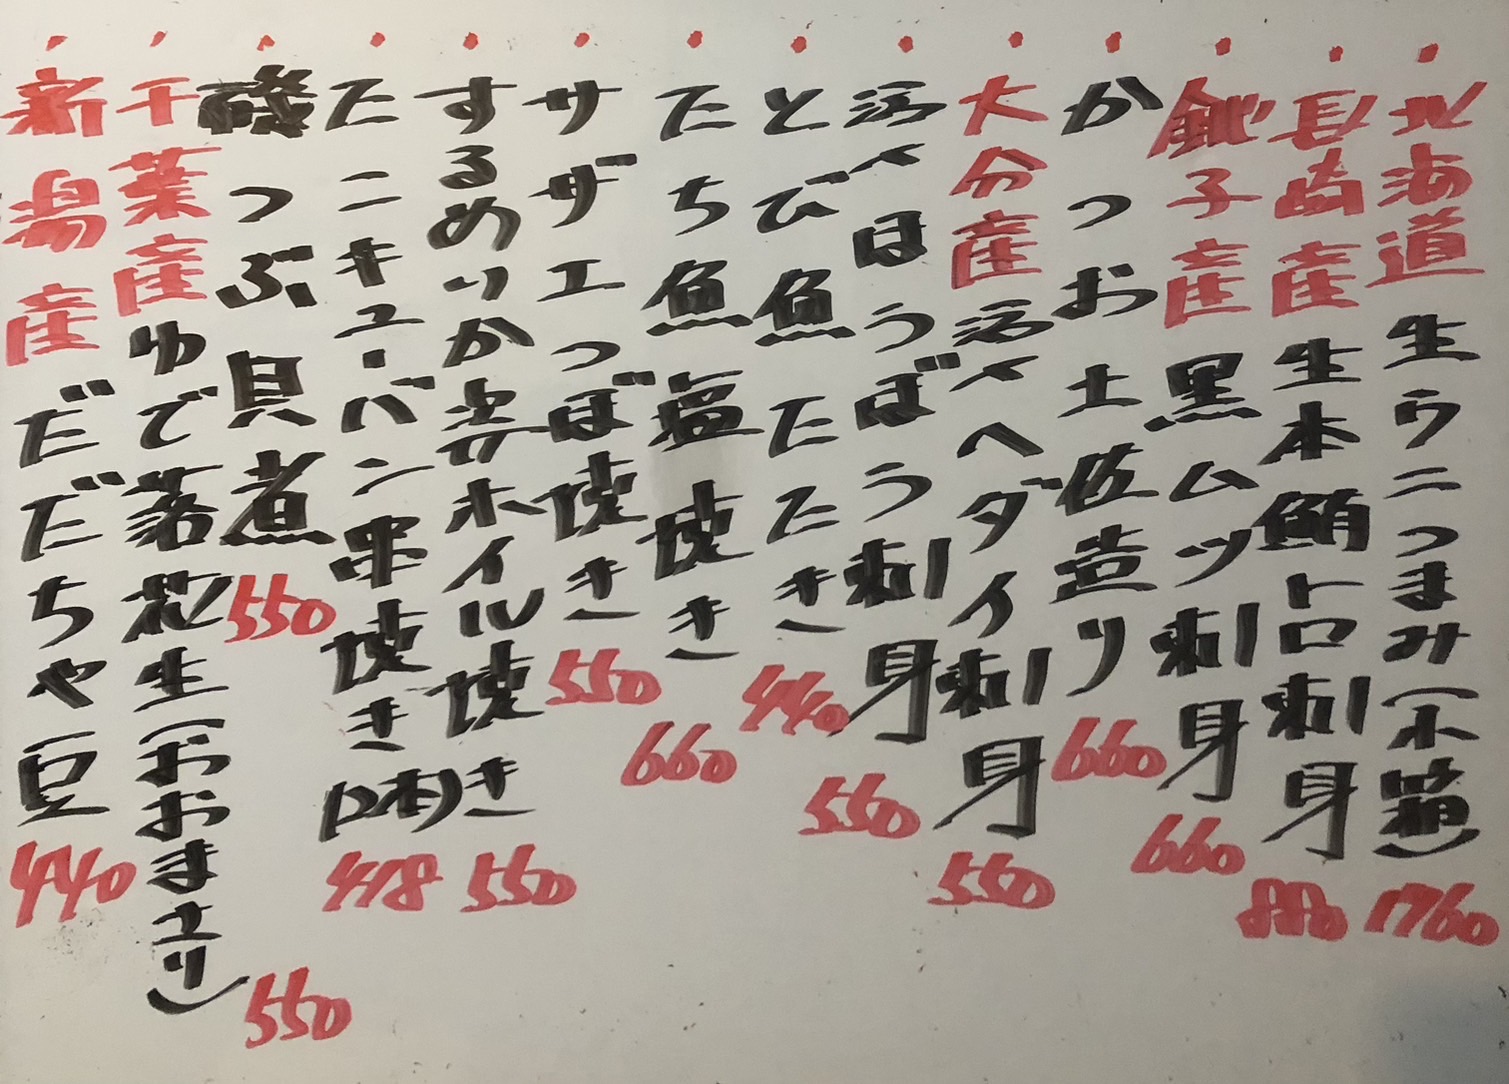 ・北海道生ウニつまみ(小箱)1760
・長崎産生本鮪トロ刺身880
・銚子産黒ムツ刺身660
・かつお土佐造り660
・大分産活〆ヘダイ刺身550
・活〆ほうぼう刺身550
・とび魚たたき440
・たち魚塩焼き660
・サザエつぼ焼き550
・するめいか弁ホイル焼き550
・たこキュー・バン串焼き(2本)418
・磯つぶ貝煮550
・千葉産ゆで落花生(おおまさり)550
・新潟産だだちゃ豆440